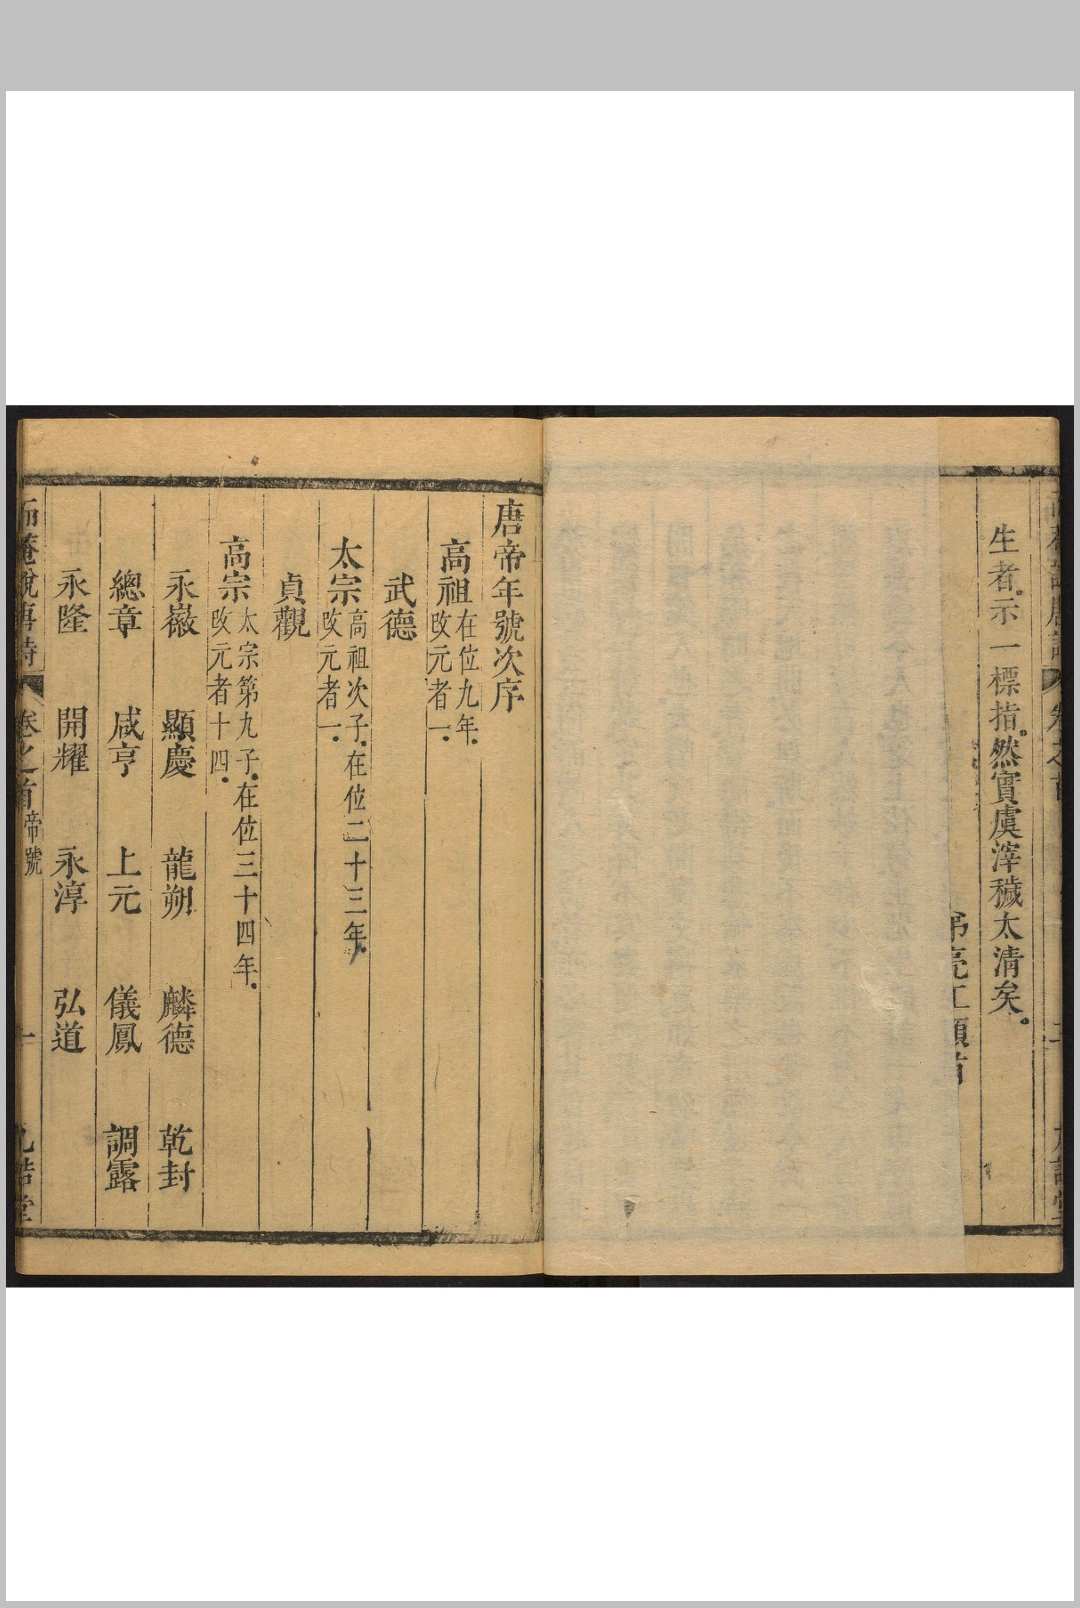 生者。示一標指。然實虞滓穢太清矣。
弟亮工頓首
唐帝年號次序
高祖在位九年。改元者一。
武德
太宗高祖次子。在位二十三年。改元者一。
貞觀
高宗太宗第九子。在位三十四年。改元者十四。
永嶶 顯慶 龍朔 麟德 乾封
總章 咸亨 上元 儀鳳 調露
永隆 開耀 永淳 弘道
卷之首 帝號 一